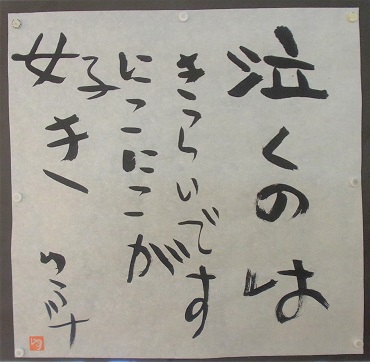 泣くのは
きらいです
にこにこが
好き